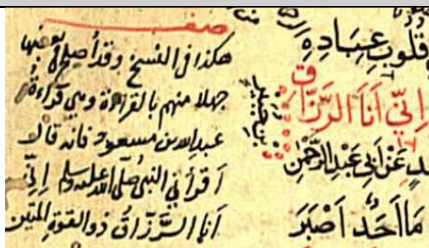 صف
قلوب عباده
إني أنا الرزاق
عن أبي عبد الرحمن
ما أحد أصبر
هكذا في النسخ وقد أصلح بعضها
جهلا منهم بالقراءة وهي قراءة
عبد الله بن مسعود فانه قال
أقرأني النبي صلى الله عليه وسلم إني
أنا الرزاق ذو القوة المتين